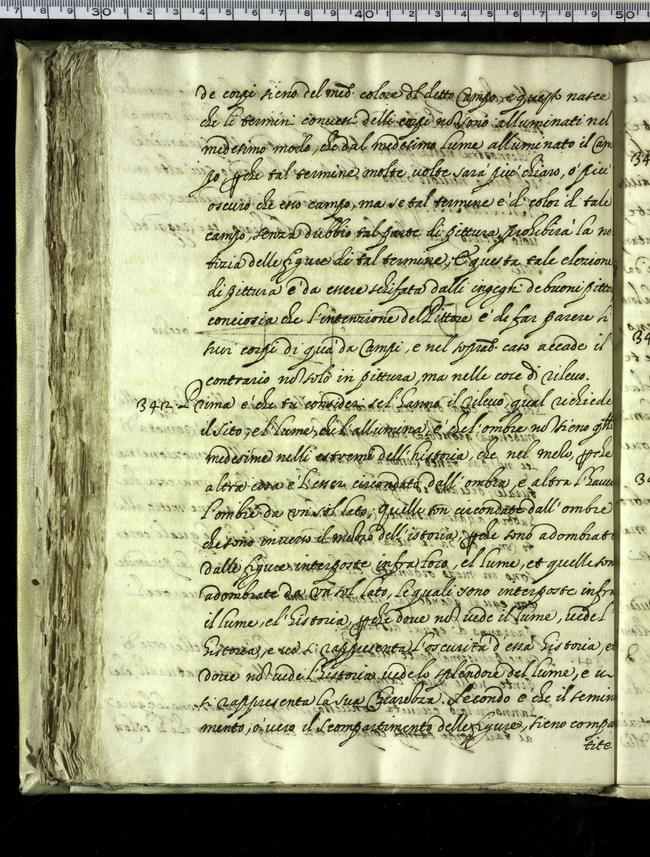 de corpi sieno del med. colore di detto Campo, e questo nasce
che li termini convessi delli corpi non sono alluminati nel
medesimo modo, che dal medesimo lume alluminato il Cam
po, perche tal termine molte volte sara piu chiaro, o piu
oscuro che esso campo, ma se tal termine e di color di tale
campo, senza dubbio tal parte di pittura prohibira la no
tizia delle figure di tal termine; E questa tale elezione
di pittura e da essere schifata dalli ingegni de buoni pitto
conciosia che l'intenzione del Pittore e de far parere li
suoi corpi di qua da Campi, e nel soprad. caso accade il
contrario non solo in pittura, ma nelle cose di rilevo.
342 Prima e che tu consideri se l'hanno il rilevo qual richiede
il sito, e 'l lume, che l'allumina, e che l'ombre non sieno
medesime nelli estremi dell'historia, che nel mezo, perche
altra cosa e l'esser circondata dall'ombra, e altra l'haver
l'ombre da un sol lato; Quelle son circondate dall'ombre
che sono inverso il mezzo dell'istoria, perche sono adombrate
dalle figure interposte infra loro, e 'l lume, et quelle son
adombrate da un sol lato, le quali sono interposte infra
il lume, e l'historia, perche dove non vede il lume, vede l
historia, e vi si rappresenta l'oscurita d'essa historia, e
dove non vede l'historia vede lo splendore del lume, e vi
si rappresenta la sua Chiarezza. Secondo e che il semina
mento, o vero il scompartimento delle figure, sieno compa
tite